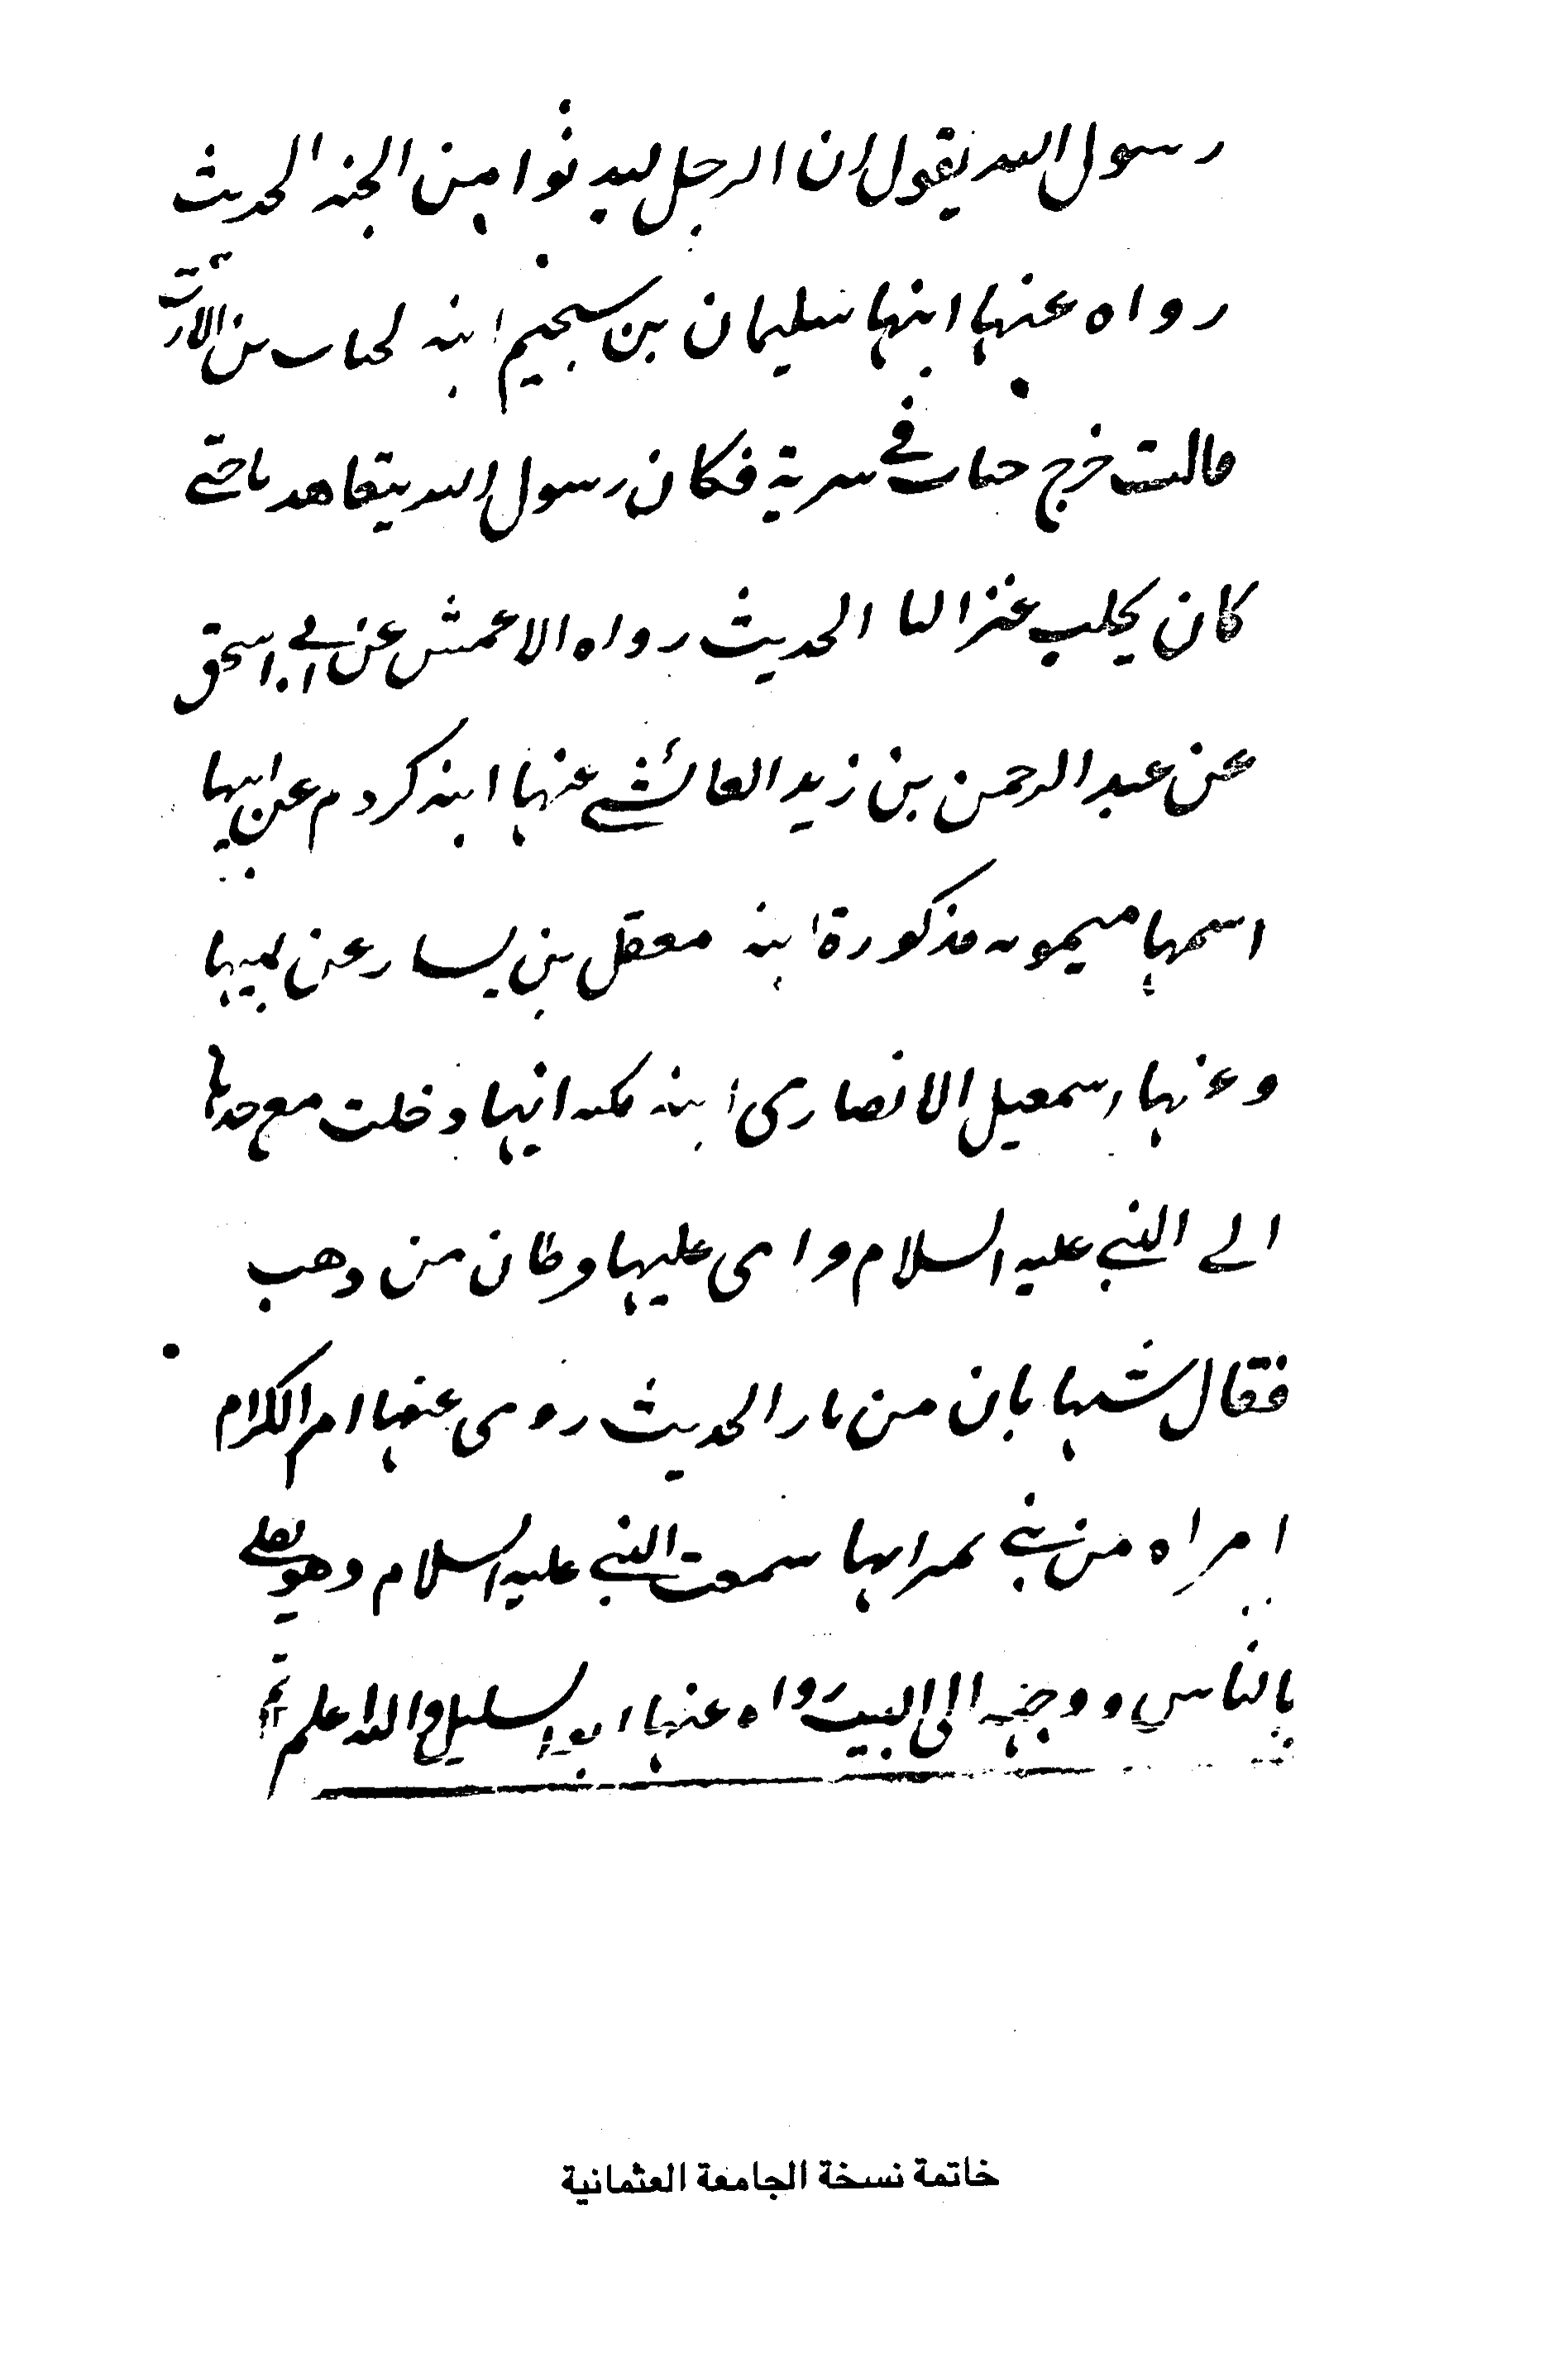 رسول الله يقول ان الرجل ليدنوا من الجنه الحديث
رواه عنها ابنها سليمان بن سحيم ابنه لحباب بن الارت
قالت خرج حباب في سرية فكان رسول الله يتعاهدنا حتى
كان يحلب عنزا لنا الحديث رواه الاعمش عن ابي اسحق
عن عبد الرحمن بن زيد العائشي عنها ابنه كردم عن ابيها
اسمها ميمونه مذكورة ابنه معقل بن يسار عن ابيها
وعنها اسمعيل الانصارى ابنه انها دخلت مع جدتها
الى النبي عليه السلام وراى عليها قرطان من ذهب
فقال شبهابان من نار الحديث روى عنها ام الكرام
امراه من بني انها سمعت النبي عليه السلام وهو يصلي
بالناس ووجهه الى البيت رواه عنها ابو السليل والله اعلم تم
خاتمة نسخة الجامعة العثمانية